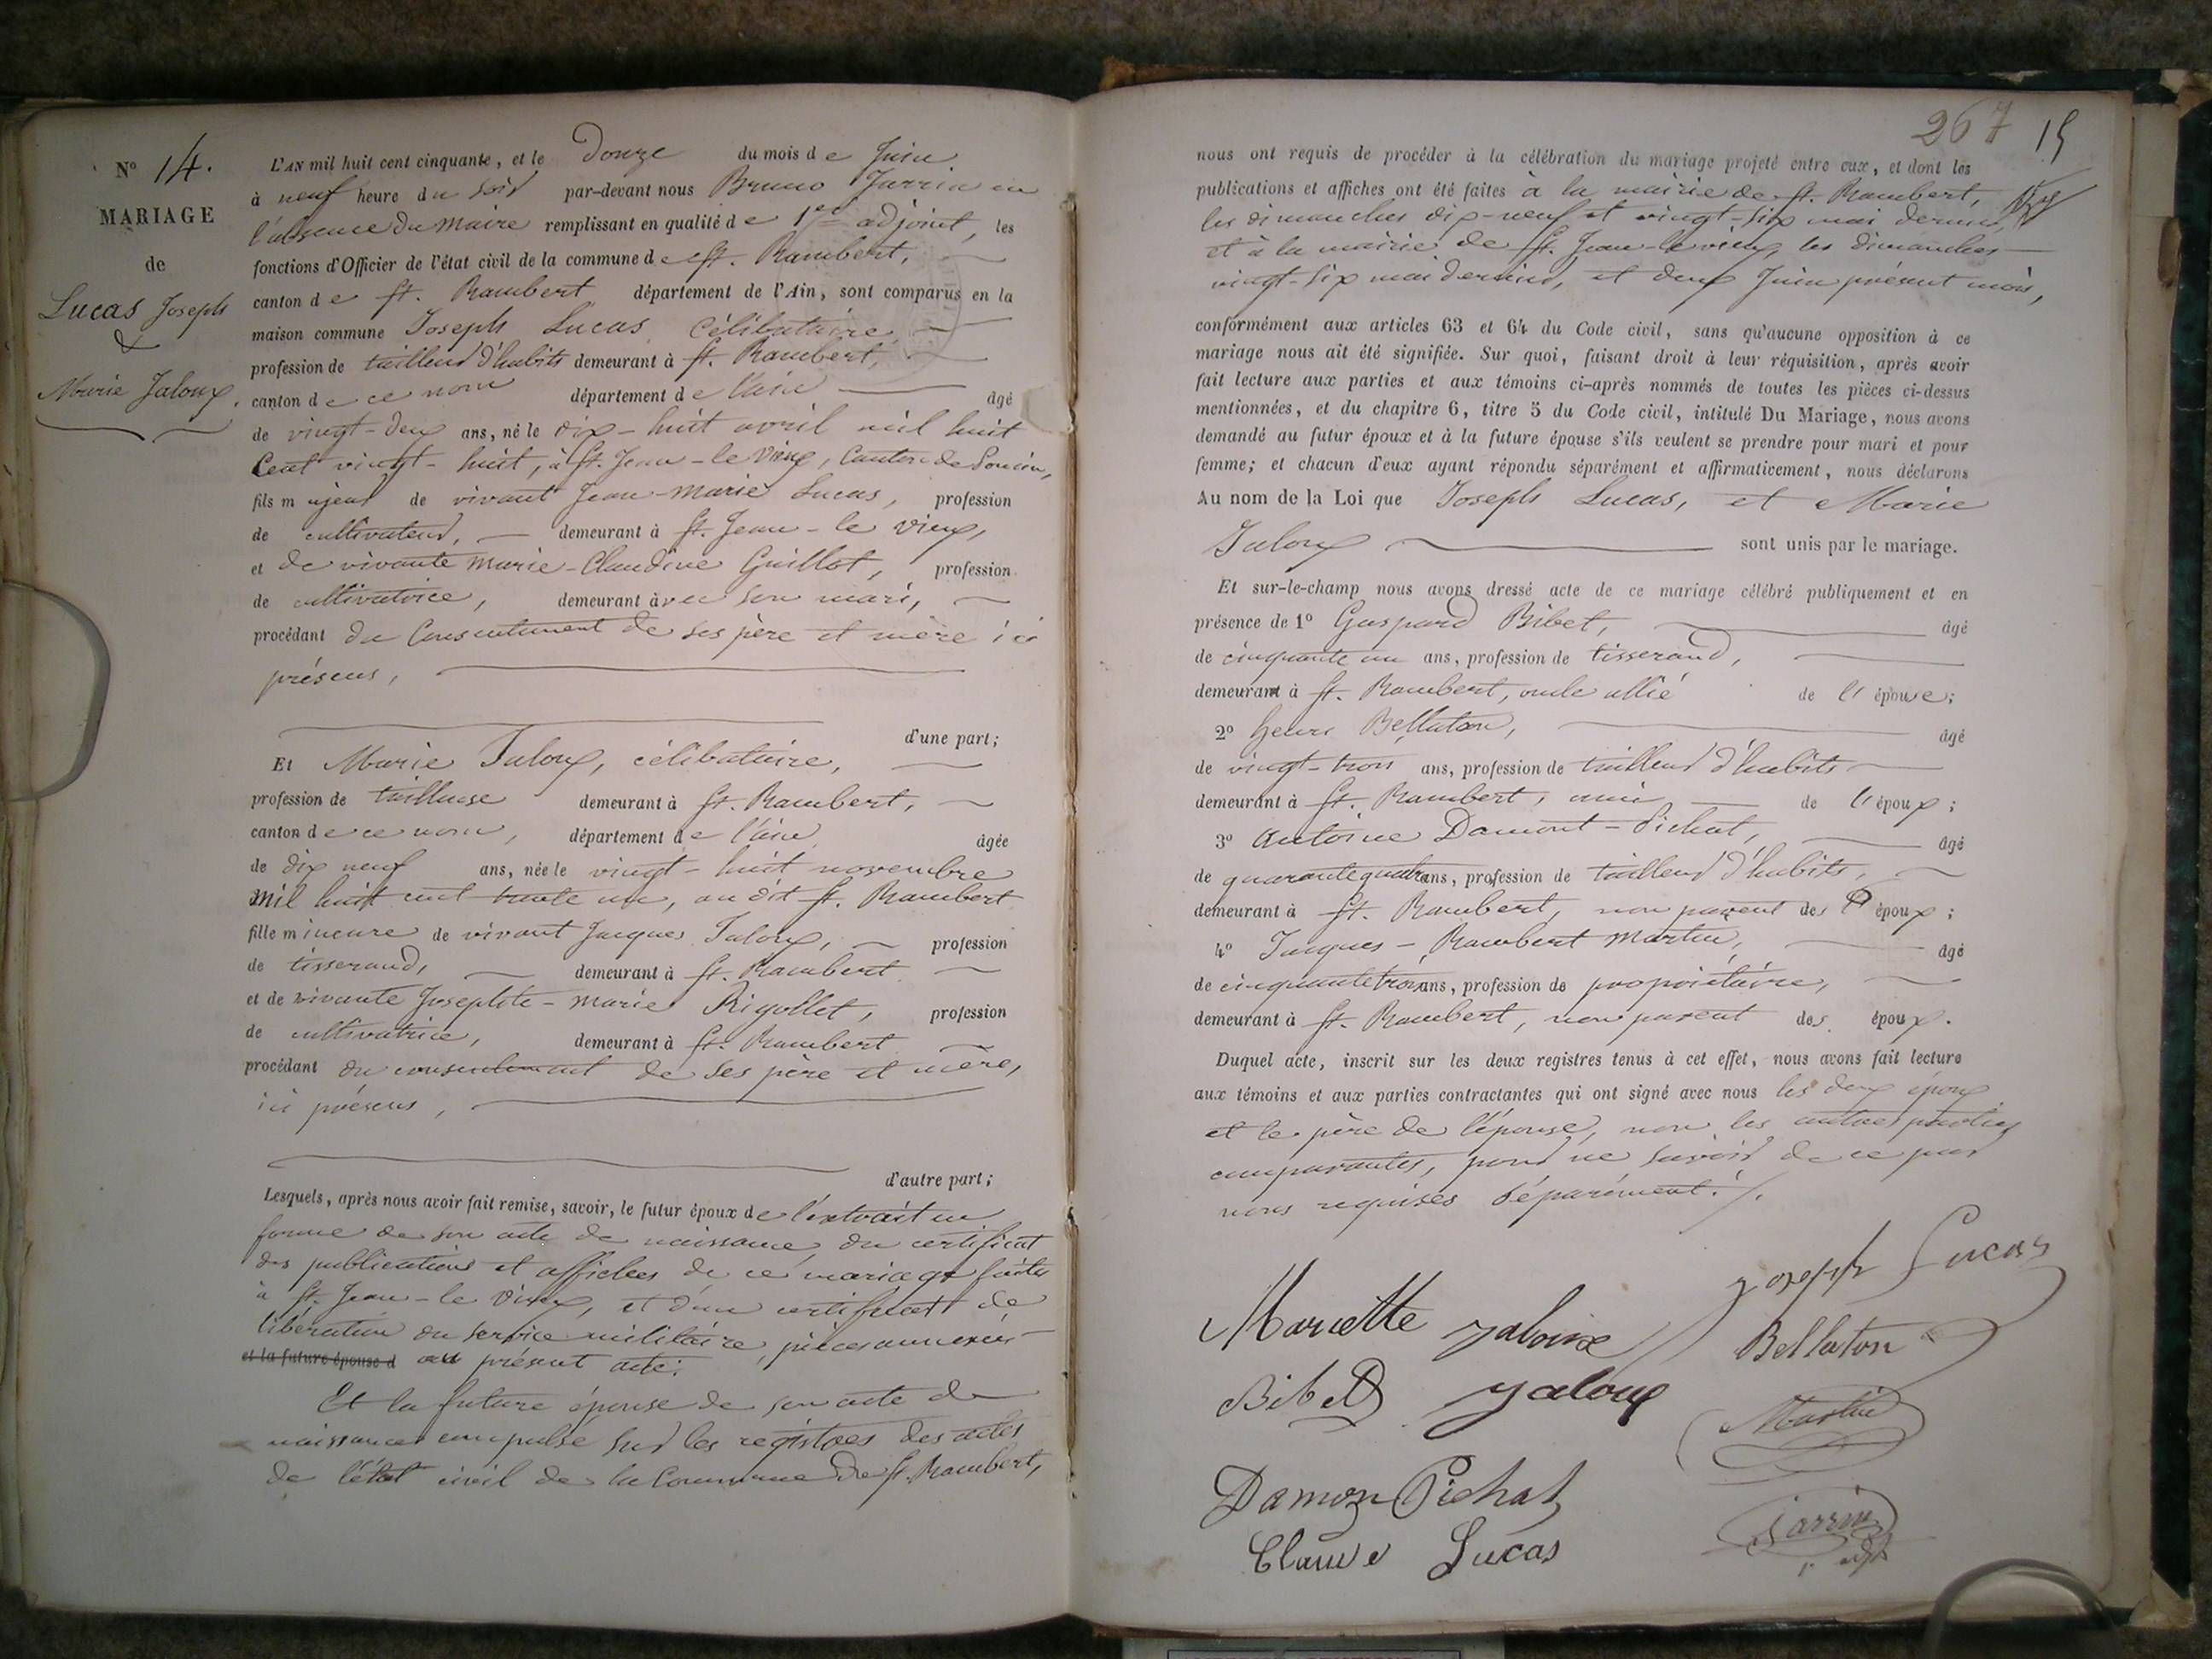 N° 14.
MARIAGE
de
Lucas Joseph
&
Marie Jaloux.
L'AN mil huit cent cinquante, et le Douze du mois de Juin
à neuf heure du soir par-devant nous Bruno Jarrin en
l'absence du Maire remplissant en qualité de 1er adjoint, les
fonctions d'Officier de l'état civil de la commune de St. Rambert,
canton de St. Rambert département de l'Ain, sont comparus en la
maison commune Joseph Lucas Célibataire
profession de tailleur d'habits demeurant à St. Rambert,
canton de ce nom département de l'ain âgé
de vingt-deux ans, né le dix-huit avril mil huit
Cent vingt-huit, à St. Jean-le Vieux, Canton de Poncin,
fils majeur de vivant Jean-Marie Lucas, profession
de cultivateur, demeurant à St. Jean-le vieux,
et de vivante Marie-Claudine Guillot, profession
de cultivatrice, demeurant avec son mari,
procédant du Consentement de ses père et mère ici
présens,
d'une part;
Et Marie Jaloux, célibataire,
profession de tailleuse demeurant à St. Rambert,
canton de ce nom, département de l'ain âgée
de dix neuf ans, née le vingt-huit novembre
mil huit cent trente un, au dit St. Rambert
fille mineure de vivant Jacques Jaloux, profession
de tisserand, demeurant à St. Rambert
et de vivante Josephte-Marie Rigollet, profession
de cultivatrice, demeurant à St. Rambert
procédant du consentement de ses père et mère,
ici présens,
d'autre part;
Lesquels, après nous avoir fait remise, savoir, le futur époux de l'extrait en
forme de son acte de naissance, du certificat
des publications et affiches de ce mariage faites
à St. Jean-le Vieux, et d'un certificat de
libération du service militaire, pièces annexées
et la future épouse d au présent acte.
Et la future épouse de son acte de
naissance compulsé sur les registres des actes
de l'état civil de la Commune de St. Rambert,
267 15
nous ont requis de procéder à la célébration du mariage projeté entre eux, et dont les
publications et affiches ont été faites à la mairie de St. Rambert,
les dimanches dix-neuf et vingt-six mai dernier,
et à la mairie de St. Jean-le vieux, les dimanches
vingt-six mai dernier, et deux Juin présent mois,
conformément aux articles 63 et 64 du Code civil, sans qu'aucune opposition à ce
mariage nous ait été signifiée. Sur quoi, faisant droit à leur réquisition, après avoir
fait lecture aux parties et aux témoins ci-après nommés de toutes les pièces ci-dessus
mentionnées, et du chapitre 6, titre 5 du Code civil, intitulé Du Mariage, nous avons
demandé au futur époux et à la future épouse s'ils veulent se prendre pour mari et pour
femme; et chacun d'eux ayant répondu séparément et affirmativement, nous déclarons
Au nom de la Loi que Joseph Lucas, et Marie
Jaloux sont unis par le mariage.
Et sur-le-champ nous avons dressé acte de ce mariage célébré publiquement et en
présence de 1° Gaspard Bibet, âgé
de cinquante un ans, profession de tisserand,
demeurant à St. Rambert, oncle allié de l'épouse;
2° henri Bellaton, âgé
de vingt-trois ans, profession de tailleur d'habits
demeurant à St. Rambert, ami de l'époux;
3° Antoine Damont-Pichat, âgé
de quarante quatre ans, profession de tailleur d'habits,
demeurant à St. Rambert, non parent des époux;
4° Jacques-Rambert Martin, âgé
de cinquante trois ans, profession de propriétaire,
demeurant à St. Rambert, non parent des époux.
Duquel acte, inscrit sur les deux registres tenus à cet effet, nous avons fait lecture
aux témoins et aux parties contractantes qui ont signé avec nous les deux époux
et le père de l'épouse, non les autres parties
comparantes, pour ne savoir de ce par
nous requises séparément./.
Joseph Lucas
Mariette Jaloux
Bellaton
Bibet Jaloux
Martin
Damon Pichat
Jarrin
1er adjt
Claude Lucas